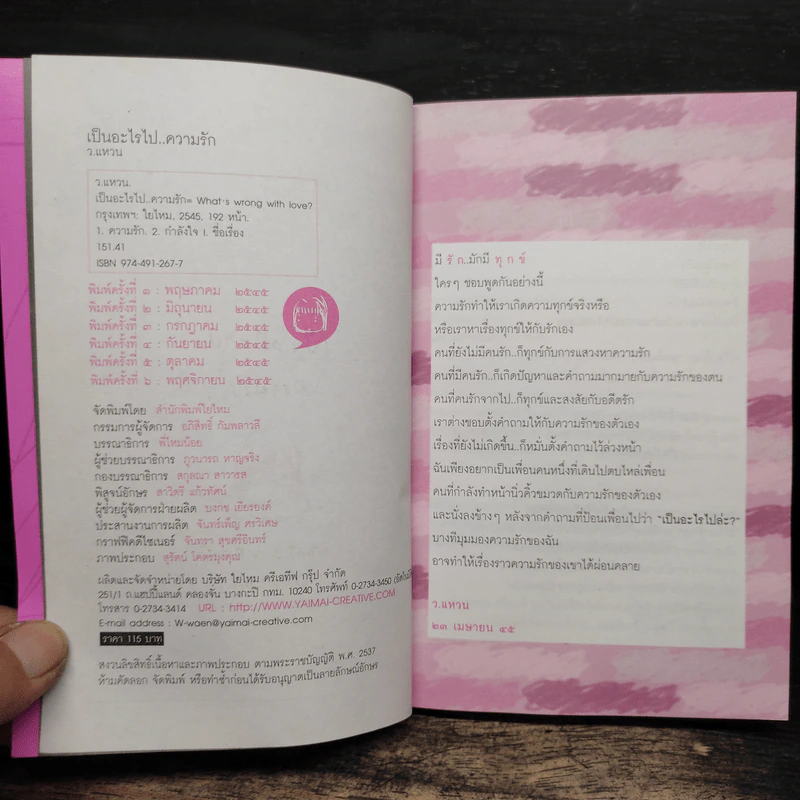 เป็นอะไรไป..ความรัก
ว.แหวน
ว.แหวน.
เป็นอะไรไป..ความรัก= What's wrong with love?
กรุงเทพฯ: ใยไหม, 2545. 192 หน้า.
1. ความรัก. 2. กำลังใจ I. ชื่อเรื่อง
151.41
ISBN 974-491-267-7
พิมพ์ครั้งที่ ๑ : พฤษภาคม ๒๕๔๕
พิมพ์ครั้งที่ ๒ : มิถุนายน ๒๕๔๕
พิมพ์ครั้งที่ ๓ : กรกฎาคม ๒๕๔๕
พิมพ์ครั้งที่ ๔ : กันยายน ๒๕๔๕
พิมพ์ครั้งที่ ๕ : ตุลาคม ๒๕๔๕
พิมพ์ครั้งที่ ๖ : พฤศจิกายน ๒๕๔๕
จัดพิมพ์โดย สำนักพิมพ์ใยไหม
กรรมการผู้จัดการ อภิสิทธิ์ กัมพลาวลี
บรรณาธิการ พี่ไหมน้อย
ผู้ช่วยบรรณาธิการ ภูวนารถ หาญจริง
กองบรรณาธิการ สกุลณา สาวารส
พิสูจน์อักษร สาวิตรี แก้วทัศน์
ผู้ช่วยผู้จัดการฝ่ายผลิต บงกช เยียรยงค์
ประสานงานการผลิต จันทร์เพ็ญ ศรวิเศษ
กราฟฟิคดีไซเนอร์ จันทรา สุขศรีอินทร์
ภาพประกอบ สุรัตน์ โคตรมุงคุณ
ผลิตและจัดจำหน่ายโดย บริษัท ใยไหม ครีเอทีฟ กรุ๊ป จำกัด
251/1 ถ.แฮปปี้แลนด์ คลองจัน บางกะปิ กทม. 10240 โทรศัพท์ 0-2734-3450
โทรสาร 0-2734-3414 URL : http://WWW.YAIMAI-CREATIVE.COM
E-mail address : W-waen@yaimai-creative.com
ราคา 115 บาท
สงวนลิขสิทธิ์เนื้อหาและภาพประกอบ ตามพระราชบัญญัติ พ.ศ. 2537
ห้ามคัดลอก จัดพิมพ์ หรือทำซ้ำก่อนได้รับอนุญาตเป็นลายลักษณ์อักษร
มี รั ก..มักมี ทุ ก ข์
ใครๆ ชอบพูดกันอย่างนี้
ความรักทำให้เราเกิดความทุกข์จริงหรือ
หรือเราหาเรื่องทุกข์ให้กับรักเอง
คนที่ยังไม่มีคนรัก..ก็ทุกข์กับการแสวงหาความรัก
คนที่มีคนรัก..ก็เกิดปัญหาและคำถามมากมายกับความรักของตน
คนที่คนรักจากไป..ก็ทุกข์และสงสัยกับอดีตรัก
เราต่างชอบตั้งคำถามให้กับความรักของตัวเอง
เรื่องที่ยังไม่เกิดขึ้น..ก็หมั่นตั้งคำถามไว้ล่วงหน้า
ฉันเพียงอยากเป็นเพื่อนคนหนึ่งที่เดินไปตบไหล่เพื่อน
คนที่กำลังทำหน้านิ่วคิ้วขมวดกับความรักของตัวเอง
และนั่งลงข้างๆ หลังจากคำถามที่ป้อนเพื่อนไปว่า "เป็นอะไรไปล่ะ?"
บางทีมุมมองความรักของฉัน
อาจทำให้เรื่องราวความรักของเขาได้ผ่อนคลาย
ว.แหวน
๒๓ เมษายน ๔๕